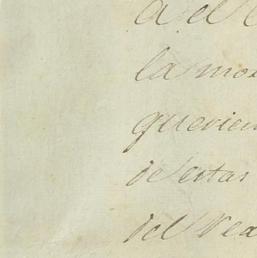 a el
la mo
querien
de estas
del Rea